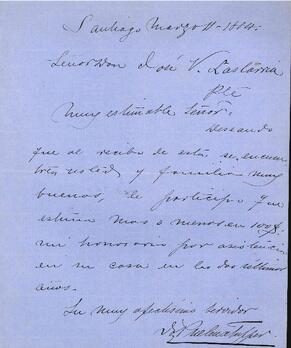 Santiago Marzo 11-1884.
Señor Don José V. Lastarria
Pte
Muy estimable Señor.
Deseando
que al recibo de esta se encuen
tren usted y familia muy
buenos, le participo que
estimo mas o menos en 100$
mi honorario por asistencia
en su casa en los dos últimos
años.
Su muy afectisimo servidor
Dr